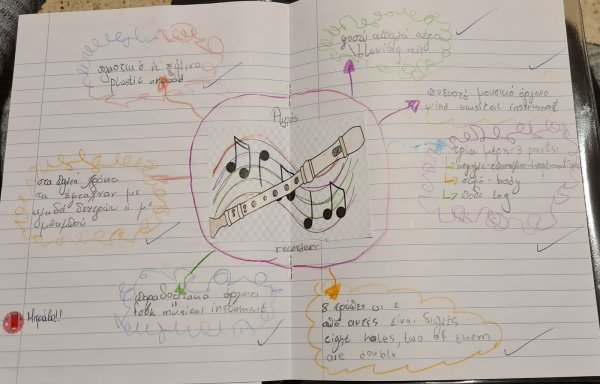 πλαστικό ή ξύλινο
plastic or wood
φυσώ απαλά αέρα
blowing air
πνευστό μουσικό όργανο
wind musical instrument
Αυλός
recorder
τρία μέρη-3 parts:
σώμα-body
πόδι leg
στα παλιά χρόνια
τα έφτιαχναν με
κλαδιά δέντρων ή με
μπαμπού
παραδοσιακό όργανο
folk musical instrument
8 τρύπες οι 2
από αυτές είναι διπλές
eight holes, two of them
are double
Μπράβο!!